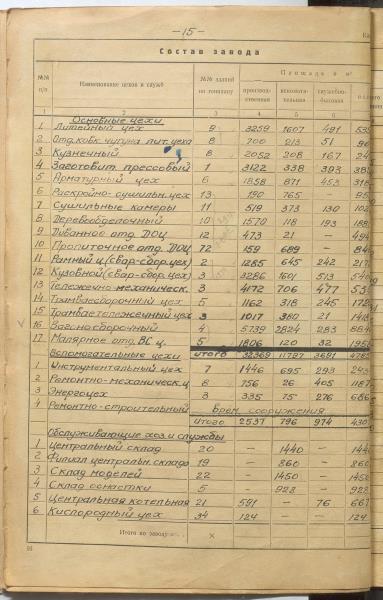 — 15 —
Состав завода
№№ п/п Наименование цехов и служб №№ зданий по генплану Площадь в м²
производственная вспомогательная служебно-бытовая
1 2 3 4 5 6
Основные цехи
1 Литейный цех 9 3259 1607 491
2 Отд. ковк. чугуна лит. цеха 8 700 213 51
3 Кузнечный 8 2052 208 167
4 Заготовит. прессовый 1 3122 338 393
5 Арматурный цех 6 1858 871 453
6 Раскройно-сушильн. цех 13 190 765 —
7 Сушильные камеры 11 519 373 130
8 Деревообделочный 10 1570 118 193
9 Диванное отд. ДОЦ 12 473 21 —
10 Пропиточное отд. ДОЦ 72 159 689 —
11 Рамный ц. (свар-сбор. цех) 2 1285 645 242
12 Кузовной (свар-сбор. цех) 3 3286 1601 513
13 Тележечно-механическ. 3 4172 706 477
14 Трамваесборочный цех 5 1162 318 245
15 Трамваетележечный цех 3 1017 380 21
16 Вагоносборочный 4 5739 2824 283
17 Малярное отд. ВС ц. 5 1806 120 32
Вспомогательные цехи итого 32369 11797 3691
1 Инструментальный цех 7 1446 695 293
2 Ремонтно-механическ. ц. 8 756 26 405
3 Энергоцех 3 335 75 276
4 Ремонтно-строительный Врем. сооружения
итого 2537 796 974
Обслуживающие хоз. и службы
1 Центральный склад 20 — 1440 —
2 Филиал центральн. склада 19 — 860 —
3 Склад моделей 22 — 1450 —
4 Склад оснастки 5 — 928 —
5 Центральная котельная 21 591 — 76
6 Кислородный цех 34 124 — —
Итого по заводу: ×